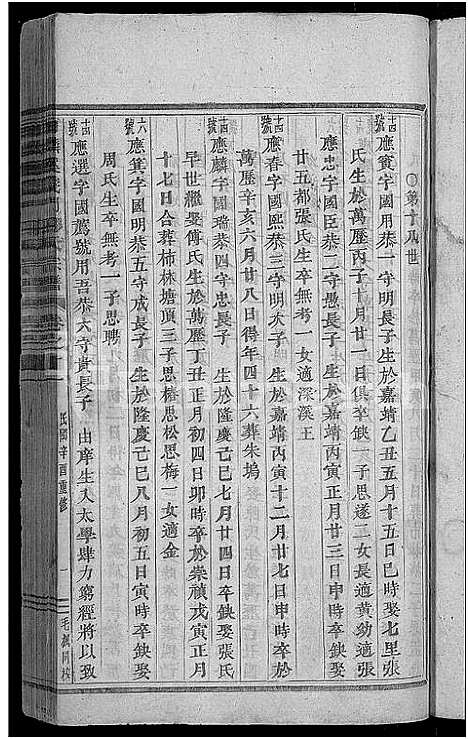 ○第十八世
十四號 應賓字國用恭一守明長子 生於嘉靖乙丑五月十五日巳時娶七里張
氏生於萬歷丙子十月廿一日俱卒缺一子思遂二女長適黃幼適張
應忠字國臣恭二守愚長子 生於嘉靖丙寅正月廿三日申時卒缺娶
廿五都張氏生卒無考一女適深溪王
十四號 應春字國熙恭三守明次子 生於嘉靖丙寅十二月廿七日申時卒於
萬歷辛亥六月廿八日得年四十六葬朱塢
十四號 應麟字國瑞恭四守忠長子 生於隆慶己巳七月廿四日卒缺娶張氏
早世繼娶傅氏生於萬歷丁丑正月初四日卯時卒於崇禎戊寅正月
十七日合葬柿林塘頂三子思梅思松思梅一女適金
六號 應箕字國明恭五守成長子 生於隆慶己巳八月初五日寅時卒缺娶
周氏生卒無考一子思聘
十四號 應選字國薦號用吾恭六守貴長子 由庠生入太學肆力窮經將以致
民國辛酉重修
一